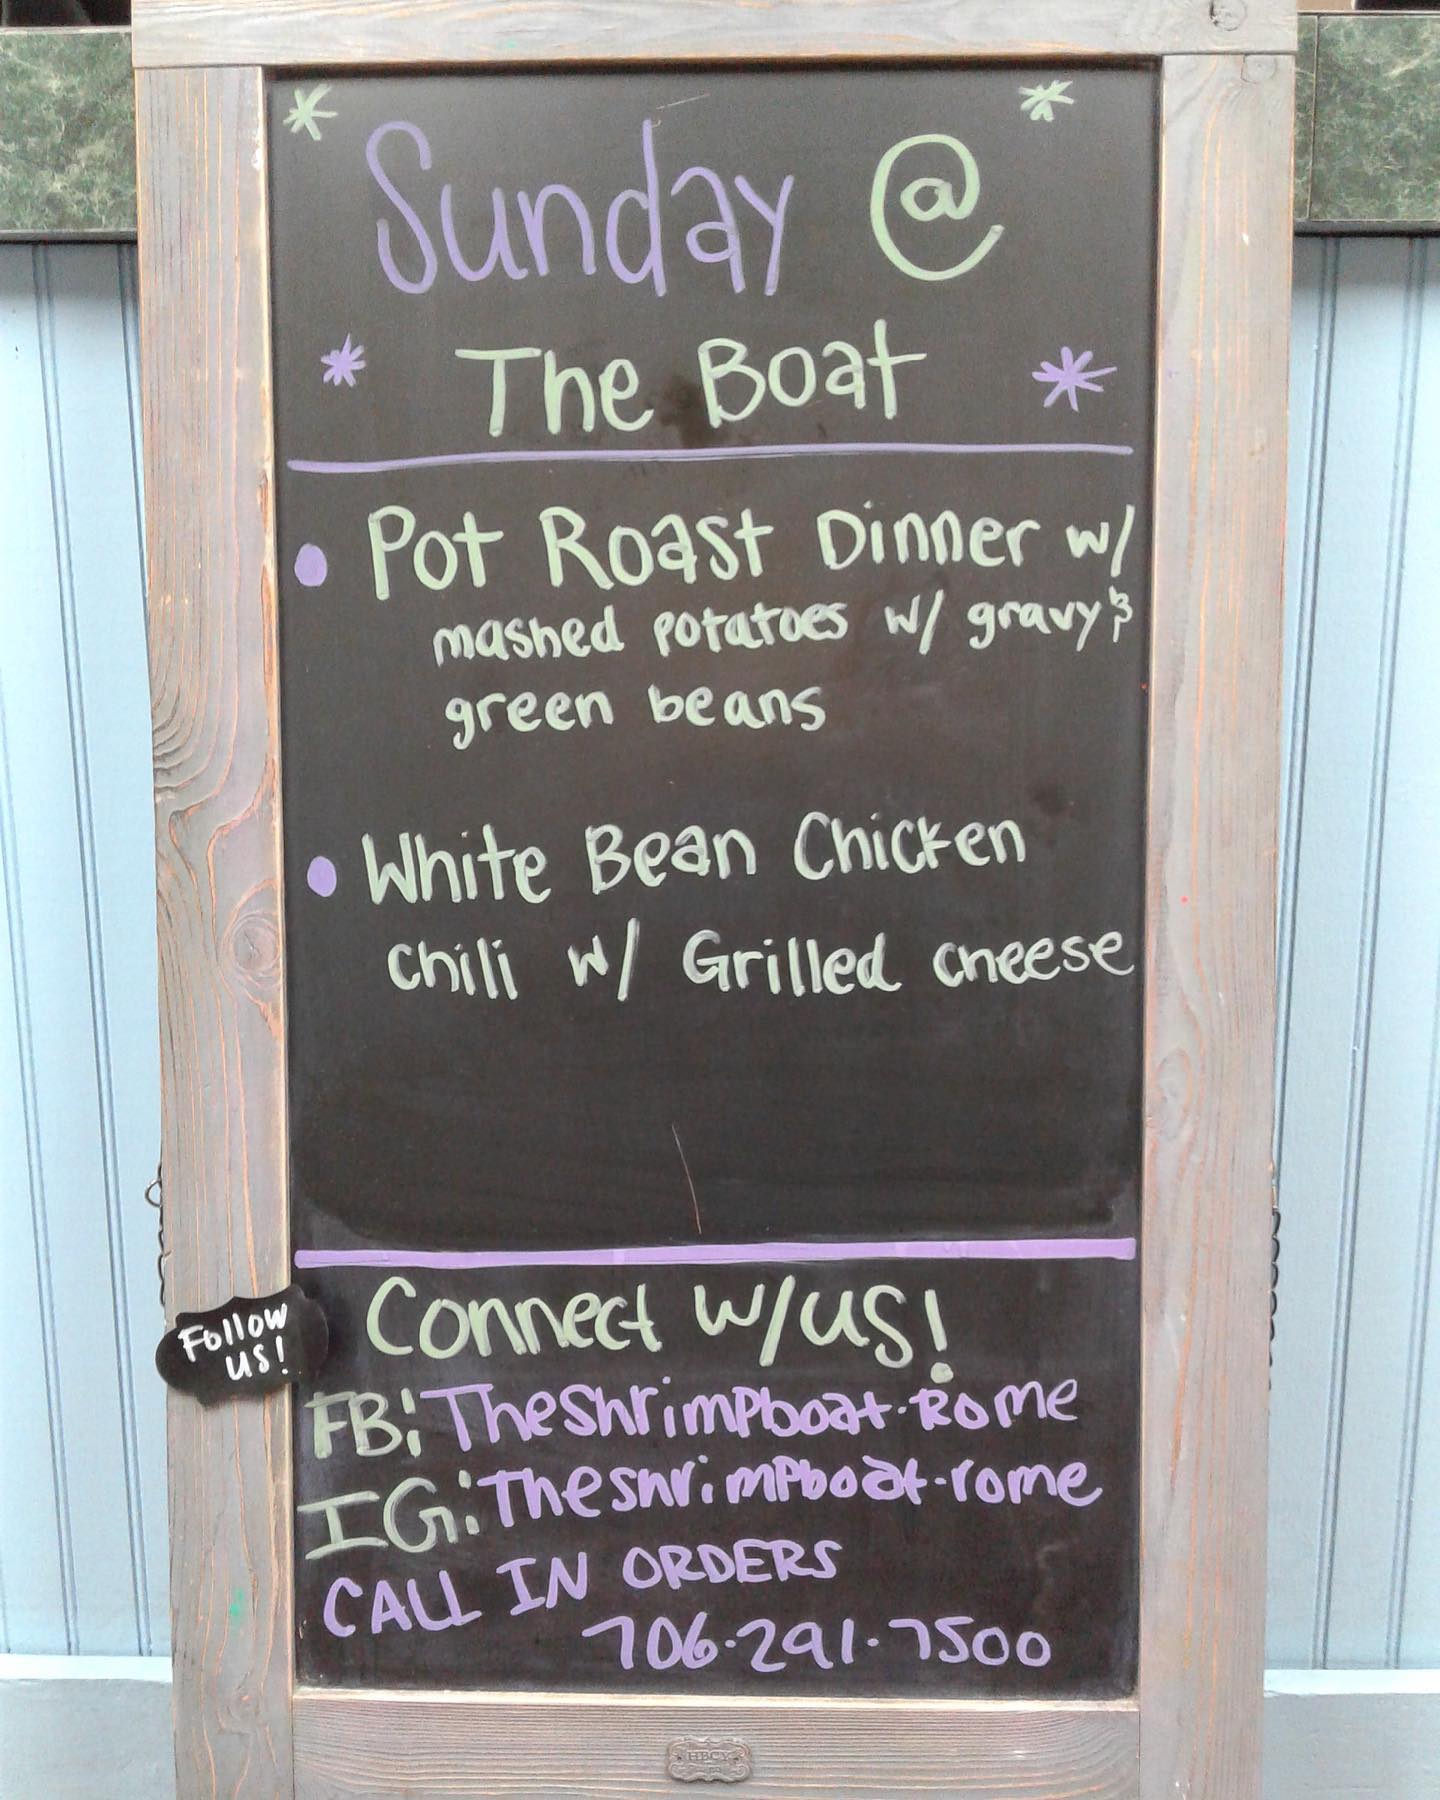 Sunday @
The Boat
• Pot Roast Dinner w/
mashed potatoes w/ gravy &
green beans
• White Bean Chicken
chili w/ Grilled cheese
Connect w/us!
Follow
us!
FB: Theshrimpboat-Rome
IG: Theshrimpboat-rome
CALL IN ORDERS
706-291-7500